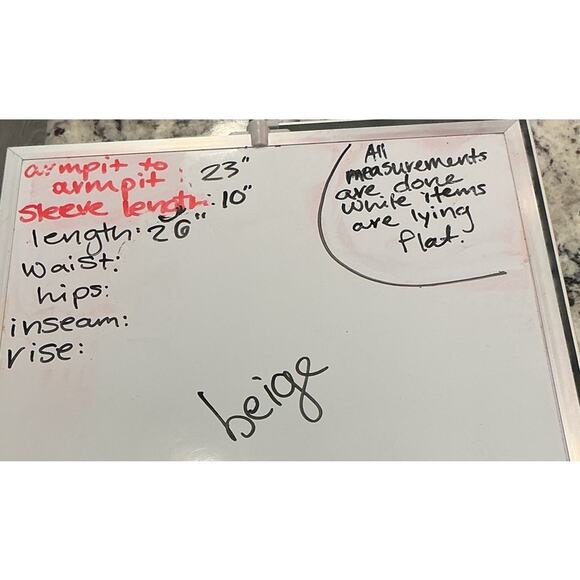 armpit to
armpit: 23"
sleeve length: 10"
length: 26"
waist:
hips:
inseam:
rise:
All
measurements
are done
while items
are lying
flat.
beige